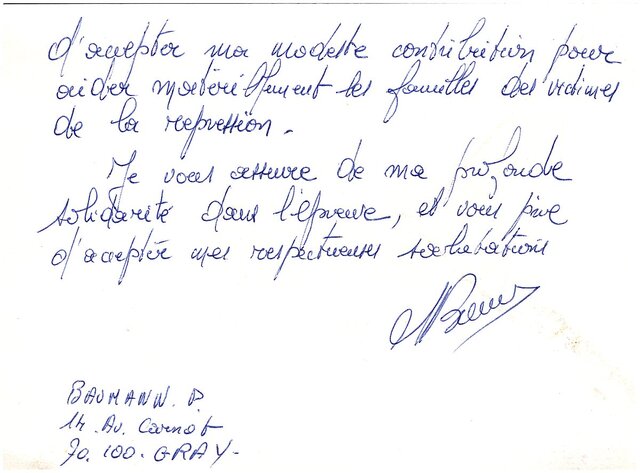 d'accepter ma modeste contribution pour
aider matériellement les familles des victimes
de la repression.
Je vous assure de ma profonde
solidarité dans l'épreuve, et vous prie
d'accepter mes respectueuses salutations
BAUMANN. P
14. Av. Carnot
70.100. GRAY-